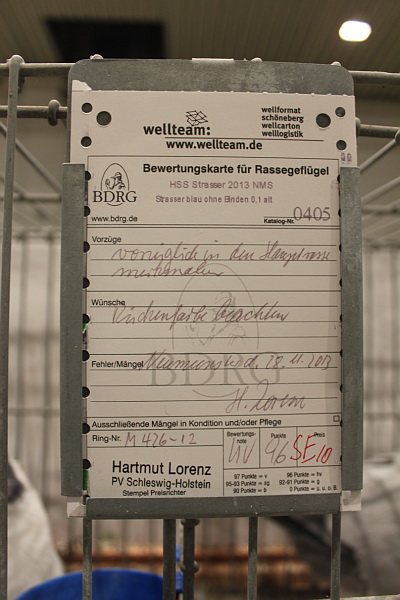 wellteam:
www.wellteam.de
wellformat
schöneberg
wellcarton
welllogistik
Bewertungskarte für Rassegeflügel
HSS Strasser 2013 NMS
Strasser blau ohne Binden 0,1 alt
BDRG
www.bdrg.de
Katalog-Nr. 0405
Vorzüge
vorzüglich in den Hauptrasse
merkmalen
Wünsche
Rückenfarbe beachten
Fehler/Mängel Neumünster d. 28.11.2013
H. Lorenz
Ausschließende Mängel in Kondition und/oder Pflege
Ring-Nr. M 476-12
Bewertungs-
note
Punkte
Preis
HV 96 SE10
Hartmut Lorenz
PV Schleswig-Holstein
Stempel Preisrichter
97 Punkte = v 96 Punkte = hv
95-93 Punkte = sg 92-91 Punkte = g
90 Punkte = b 0 Punkte = u, u. o. B.